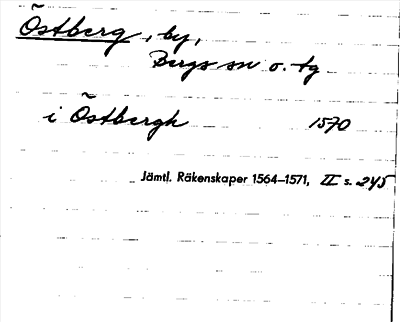 Östberg, by,
Bergs sn o. tg
i Östbergh 1570
Jämtl. Räkenskaper 1564–1571, II s. 245